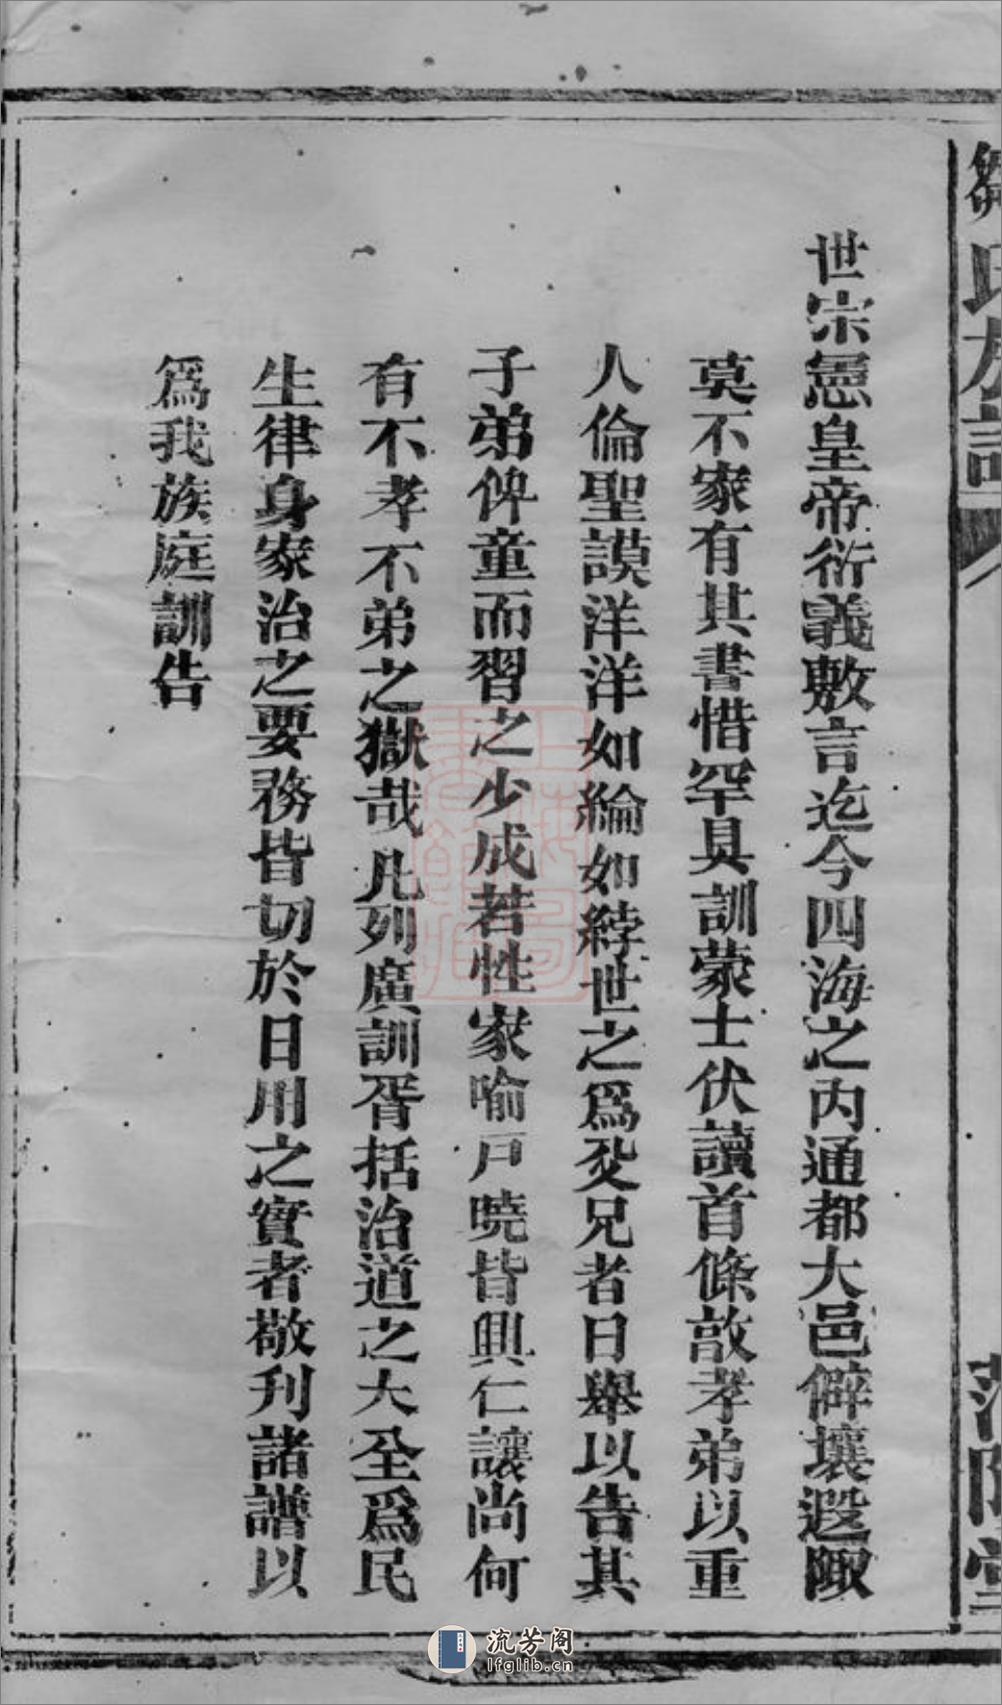 世宗憲皇帝衍義敷言迄今四海之內通都大邑僻壤遐陬
莫不家有其書惜罕具訓蒙士伏讀首條敦孝弟以重
人倫聖謨洋洋如綸如綍世之爲父兄者日舉以告其
子弟俾童而習之少成若性家喻戶曉皆興仁讓尚何
有不孝不弟之獄哉凡列廣訓胥括治道之大全爲民
生律身家治之要務皆切於日用之實者敬刋諸譜以
爲我族庭訓告
氏族譜
范陽堂
流芳阁
lfglib.cn